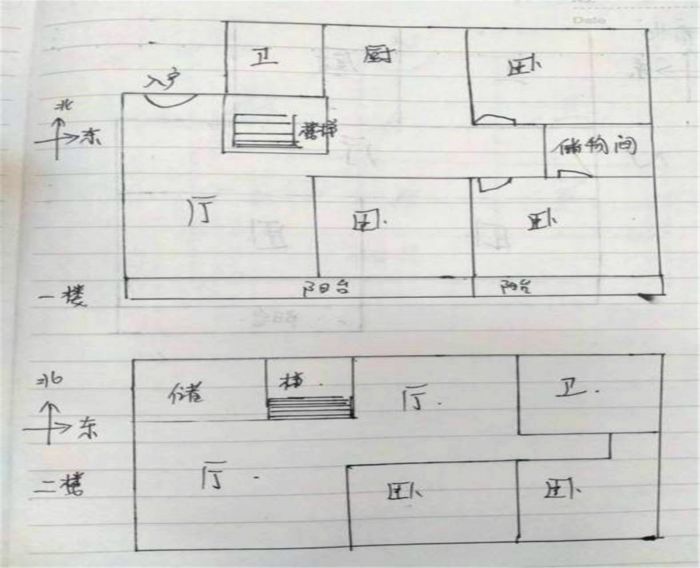 Date
卫 厨 卧
入户
北
东
楼梯
储物间
厅 卧 卧
一楼
阳台 阳台
北
东
储 梯 厅 卫
二楼
厅 卧 卧